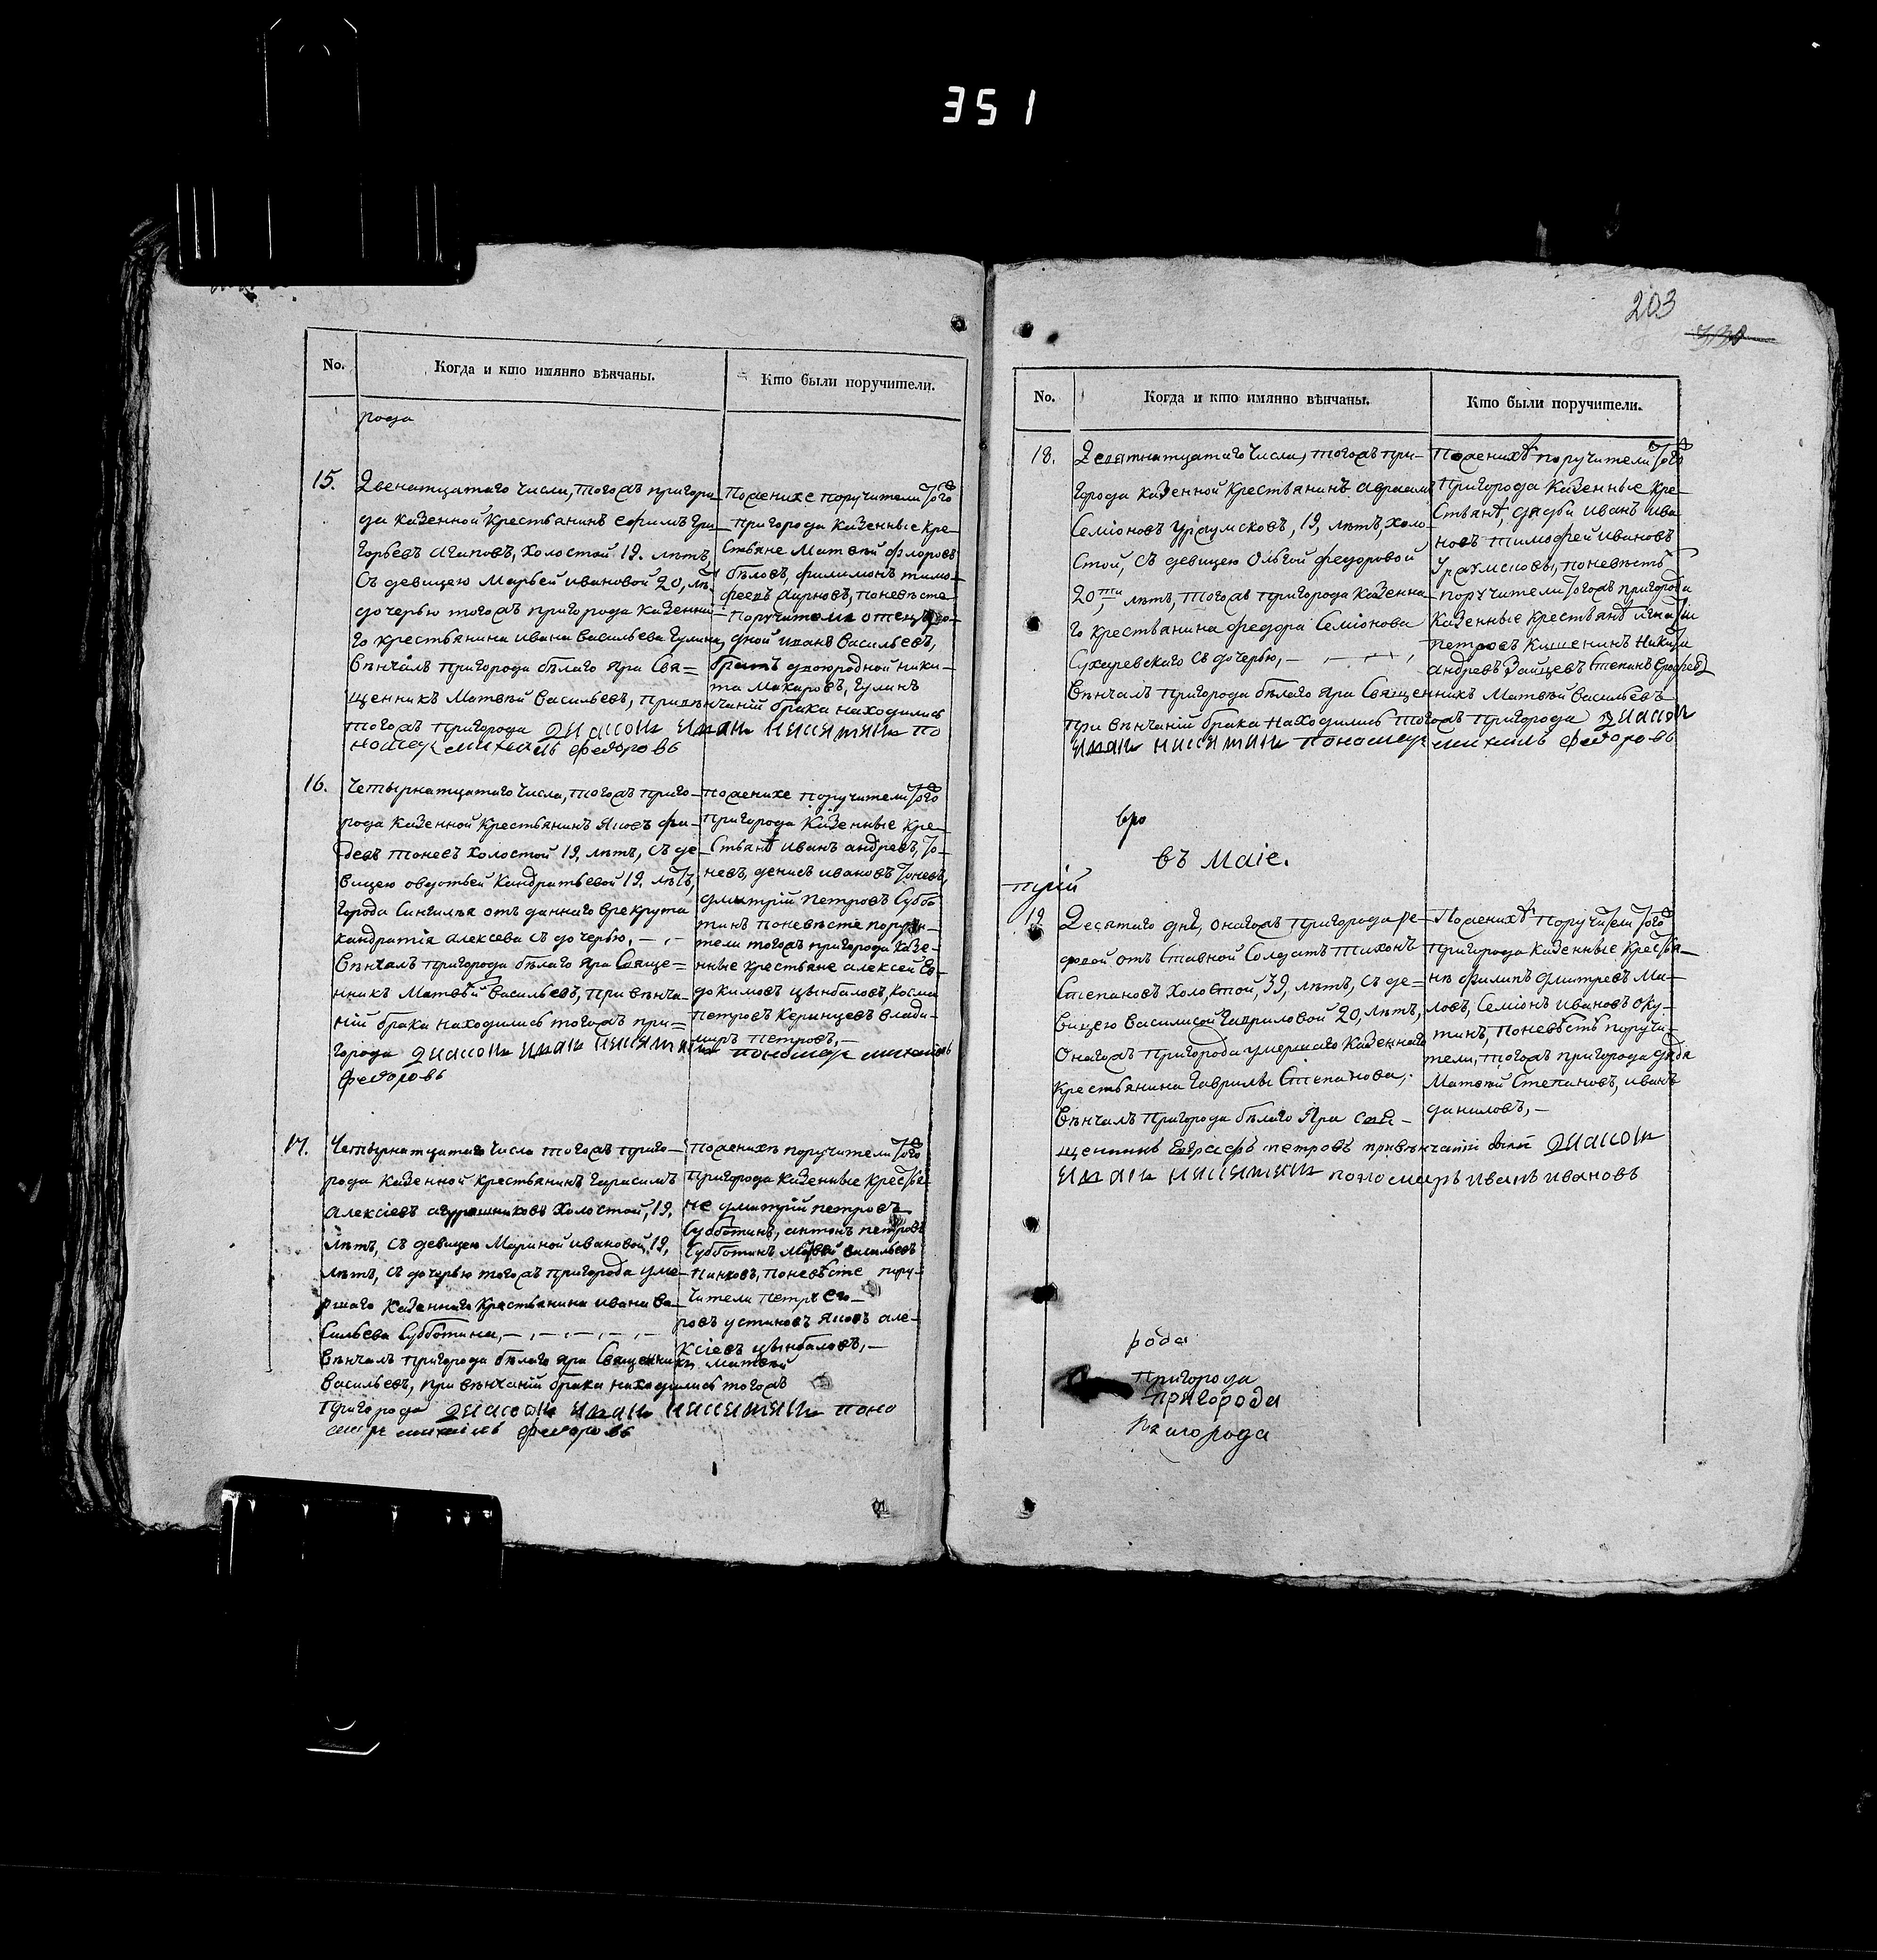 351
No.
Когда и кто имянно вѣнчаны.
Кто были поручители.
рода
15.
Двенатцатаго числа, тогожъ пригоро-
да казенной крестьянинъ Ефимъ Гри-
горьевъ Агаповъ, холостой 19. лѣтъ,
Съ девицею Марьей Ивановой 20, лѣ.
дочерью тогожъ пригорода казенна-
го крестьянина Ивана Васильева Гулина,
вѣнчалъ пригорода бѣлаго Яра Свя=
щенникъ Матвѣй Васильевъ, привѣнчаніи брака находились
тогожъ пригорода
михаилъ федоровъ
Поженихе поручители того
пригорода казенные кре-
стьяне Матвѣй Флоровъ
бѣловъ, филимонъ тимо-
феевъ поневѣсте
поручители отецъ
дной Иванъ Васильевъ,
братъ двоюродной ники-
та Макаровъ, Гулинъ
16.
Четырнатцатаго числа, тогожъ приго-
рода казенной крестьянинъ Яковъ фа-
девъ тоневъ холостой 19, лѣтъ, съ де-
вицею овдотьей Кандратьевой 19. лѣтъ,
города Сингилея отъ даннаго врекрута
кандратія алексева съ дочерью,
Вѣнчалъ пригорода бѣлаго Яра Свяще=
нникъ Матвѣй Васильевъ, при вѣнча-
ніи брака находились тогожъ при=
города
пономарь михаилъ
федоровъ
поженихе поручители того
пригорода казенные кре-
стьянѣ иванъ андревъ, то-
невъ, денисъ ивановъ тоневъ,
дмитрій петровъ Суббо
тинъ поневѣсте поручи-
тели тогожъ пригорода казе-
нные крестьяне алексей Ев-
докимовъ цынбаловъ, косма
петровъ Керинцевъ влади-
миръ петровъ,
17.
Четырнатцатаго числа тогожъ приго-
рода казенной крестьянинъ Гарасимъ
Алексіевъ холостой, 19,
лѣтъ, съ девицею Мариной ивановой, 19,
лѣтъ, съ дочерью тогожъ пригорода уме-
ршаго казеннаго крестьянина ивана ва-
сильева Субботина,
вѣнчалъ пригорода бѣлаго Яра Священникъ матвей
васильевъ, при вѣнчаніи брака находились тогожъ
пригорода
михаилъ федоровъ
поженихѣ поручители того
пригорода казенные крестья-
не дмитрій петровъ
Субботинъ, антонъ петровъ
Субботинъ, Матвей васильевъ
Панковъ, поневѣсте пору-
чители петръ его-
ровъ устиновъ Яковъ але-
ксіевъ цынбаловъ,
203
No.
Когда и кто имянно вѣнчаны.
Кто были поручители.
18.
Девятнатцатаго числа, тогожъ при-
города казенной крестьянинъ авраамъ
Семіоновъ Ураумсковъ, 19, лѣтъ, холо-
стой, съ девицею Ольгой федоровой
20,ти лѣтъ, тогожъ пригорода казенна-
го крестьянина федора Семіонова
Сухаревскаго съ дочерью,
вѣнчалъ пригорода бѣлаго Яра Священникъ Матвѣй васильевъ
При вѣнчаніи брака находились тогожъ пригорода
пономарь михаилъ федоровъ
Поженихѣ поручители того
пригорода казенные кре-
стьянѣ, дядьи иванъ ива-
новъ тимофей ивановъ
Ураумсковы, поневѣстѣ
поручители тогожъ пригорода
казенные крестьянѣ Игнатіи
петровъ Кишенинъ Никита
андревъ Зайцевъ Степанъ
въ Маіе.
19
Десятаго дня, онагожъ пригорода ре-
довой отъ ставной Солдатъ тихонъ
Степановъ холостой, 39, лѣтъ, съ де=
вицею Василисой гавриловой 20, лѣтъ,
Онагожъ пригорода умершаго казеннаго
крестьянина гаврилы Степанова,
Вѣнчалъ пригорода бѣлаго Яра свя-
щенникъ петровъ
пономарь иванъ ивановъ
Поженихѣ поручители того
пригорода казенные крестья-
нѣ филипъ дмитревъ Ма-
ловъ, Семіонъ ивановъ оку-
тинъ, поневѣстѣ поручи-
тели, тогожъ пригорода дядя
Матвѣй Степановъ, иванъ
даниловъ,
рода
пригорода
пригорода